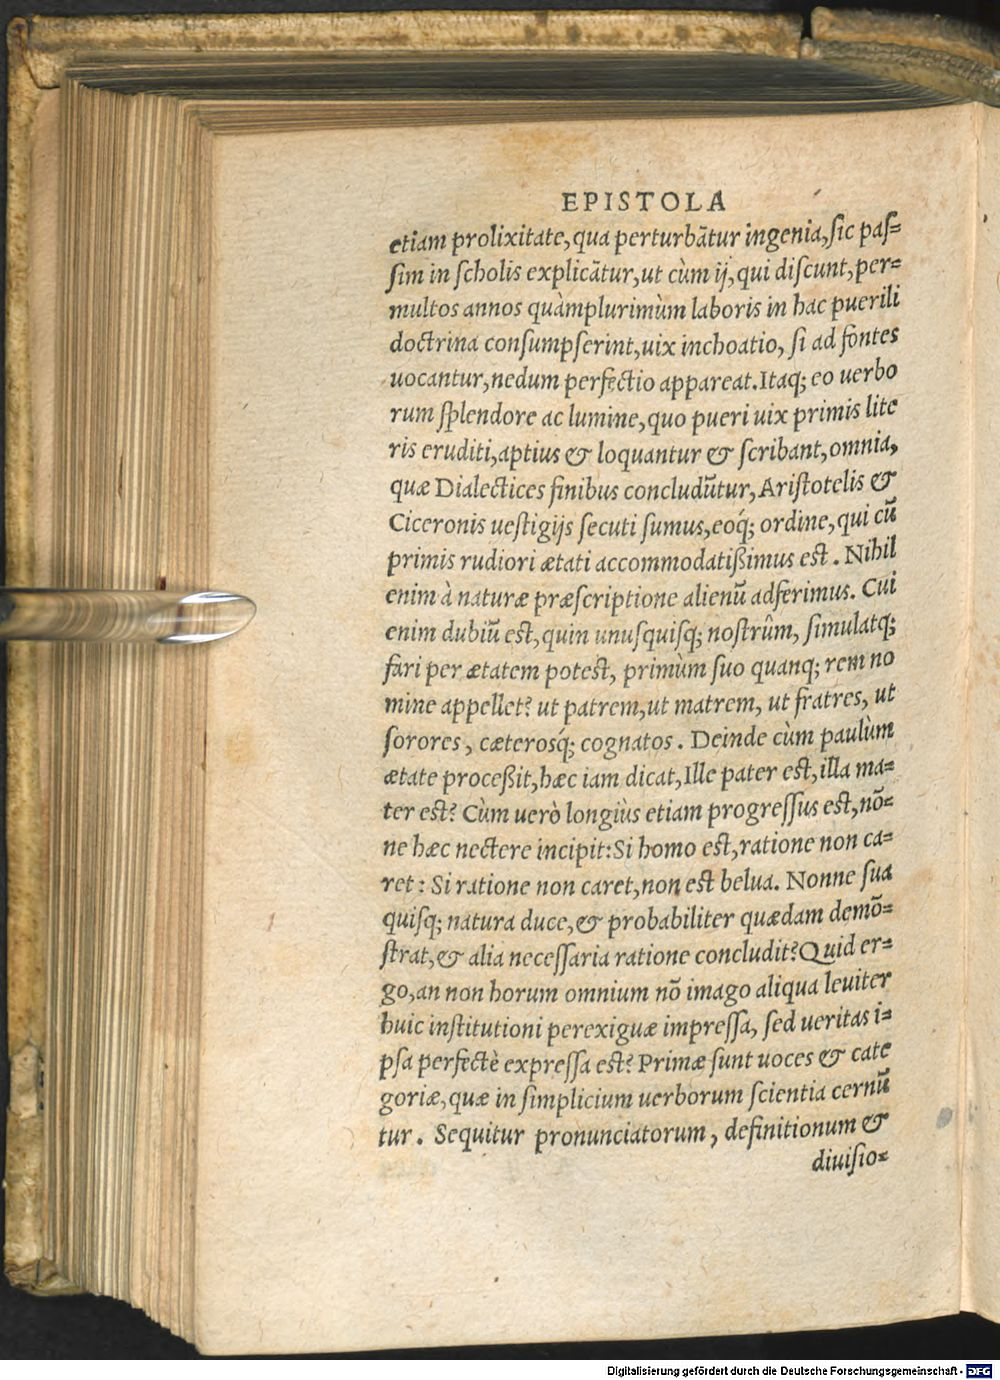 EPISTOLA
etiam prolixitate, qua perturbãtur ingenia, ſic paſ=
ſim in ſcholis explicãtur, ut cùm ij, qui diſcunt, per=
multos annos quàmplurimùm laboris in hac puerili
doctrina conſumpſerint, uix inchoatio, ſi ad fontes
uocantur, nedum perfectio appareat. Itaq; eo uerbo
rum ſplendore ac lumine, quo pueri uix primis lite
ris eruditi, aptius & loquantur & ſcribant, omnia,
quæ Dialectices finibus concludũtur, Ariſtotelis &
Ciceronis ueſtigijs ſecuti ſumus, eoq́; ordine, qui cũ
primis rudiori ætati accommodatißimus est. Nihil
enim à naturæ præſcriptione alienũ adferimus. Cui
enim dubiũ est, quin unuſquiſq; noſtrûm, ſimulatq;
fari per ætatem potest, primùm ſuo quanq; rem no
mine appellet? ut patrem, ut matrem, ut fratres, ut
ſorores, cæterosq́; cognatos. Deinde cùm paulùm
ætate proceßit, hæc iam dicat, Ille pater est, illa ma=
ter est? Cùm uerò longiùs etiam progreſſus est, nõ=
ne hæc nectere incipit: Si homo est, ratione non ca=
ret: Si ratione non caret, non est belua. Nonne ſua
quiſq; natura duce, & probabiliter quædam demõ=
ſtrat, & alia neceſſaria ratione concludit? Quid er=
go, an non horum omnium nõ imago aliqua leuiter
huic inſtitutioni perexiguæ impreſſa, ſed ueritas i=
pſa perfectè expreſſa est? Primæ ſunt uoces & cate
goriæ, quæ in ſimplicium uerborum ſcientia cernũ
tur. Sequitur pronunciatorum, definitionum &
diuiſio=
Digitalisierung gefördert durch die Deutsche Forschungsgemeinschaft - DFG